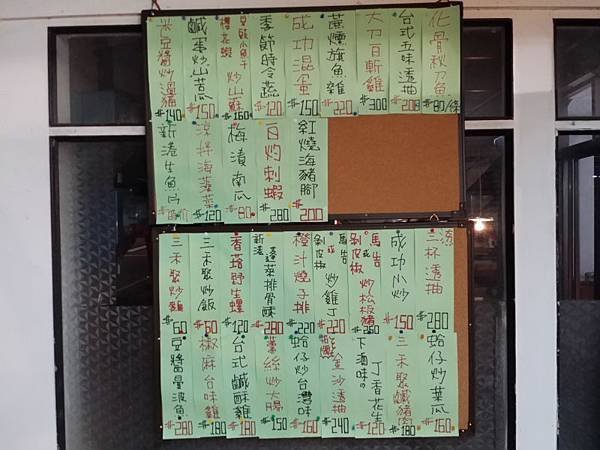 化骨秋刀魚 #80/條
台式五味透抽 #208
大刀百斬雞 #300
蔗燻旗魚雜 #220
成功混蛋 #150
季節時令蔬 #120
豆豉小魚干 炒山蘇 #160
鹹蛋炒山苦瓜 #150
米豆醬炒過貓 #140
紅燒海豬腳 #200
百灼刺蝦 #280
梅漬南瓜 #80
涼拌海藻菜 #120
新港生魚片
三杯透抽 #280
成功小炒 #150
馬告 或 剝皮椒 炒松板豬 #260
馬告 或 剝皮椒 炒雞丁 #220
橙汁燒子排 #220
新港 蓬萊排骨酥 #280
香菇野生螺 #120
三禾聚炒飯 #50
三禾聚炒麵 #60
蛤仔炒菜瓜 #160
三禾聚鹹豬肉 #180
下酒味の 丁香花生 #120
金沙透抽 #240
蛤仔炒台灣味 #160
薑絲炒大腸 #150
台式鹹酥雞 #180
椒麻台味雞 #180
豆醬曼波魚 #280